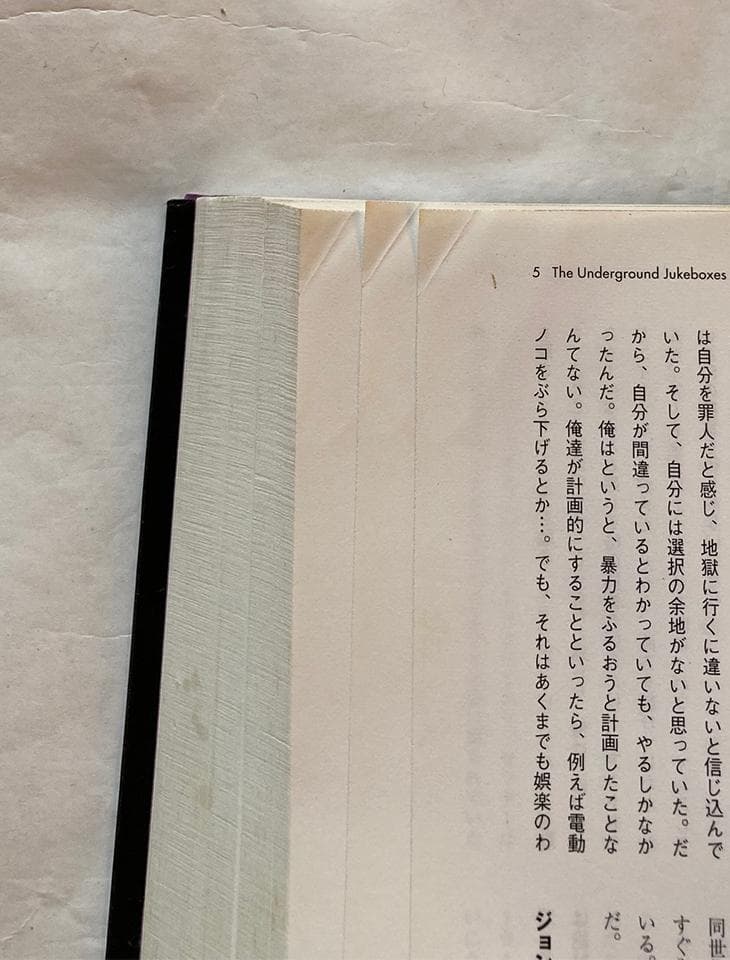 5 The Underground Jukeboxes
は自分を罪人だと感じ、地獄に行くに違いないと信じ込んで
いた。そして、自分には選択の余地がないと思っていた。だ
から、自分が間違っているとわかっていても、やるしかなか
ったんだ。俺はというと、暴力をふるおうと計画したことな
んてない。俺達が計画的にすることといったら、例えば電動
ノコをぶら下げるとか…。でも、それはあくまでも娯楽のわ
同世
すぐ
いる。
だ。
ジョン